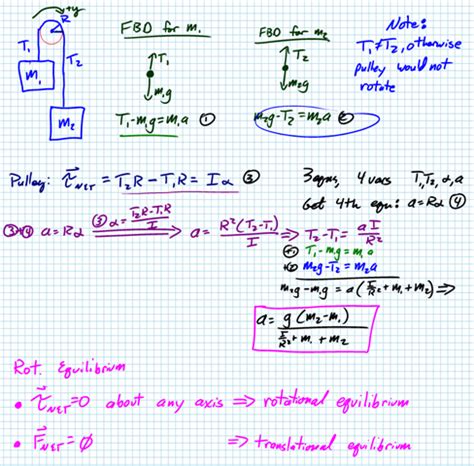 +y
R
T₁
T₂
m₁
m₂
FBD for m₁
T₁
m₁g
T₁-m₁g=m₁a ①
FBD for m₂
T₂
m₂g
m₂g-T₂=m₂a ②
Note:
T₁≠T₂, otherwise
pulley would not
rotate
Pulley: τ⃗NET = T₂R - T₁R = Iα ③
3 eqns, 4 vars T₁,T₂,α,a
Get 4th eqn: a=Rα ④
③+④ a=Rα ③ α=(T₂R-T₁R)/I ⟹ a= R²(T₂-T₁)/I ⟹ T₂-T₁= aI/R²
+① T₁-m₁g=m₁a
+② m₂g-T₂=m₂a
m₂g-m₁g = a(I/R²+m₁+m₂) ⟹
a= g(m₂-m₁)/(I/R²+m₁+m₂)
Rot. Equilibrium
• τ⃗NET=0 about any axis ⟹ rotational equilibrium
• F⃗NET=∅ ⟹ translational equilibrium